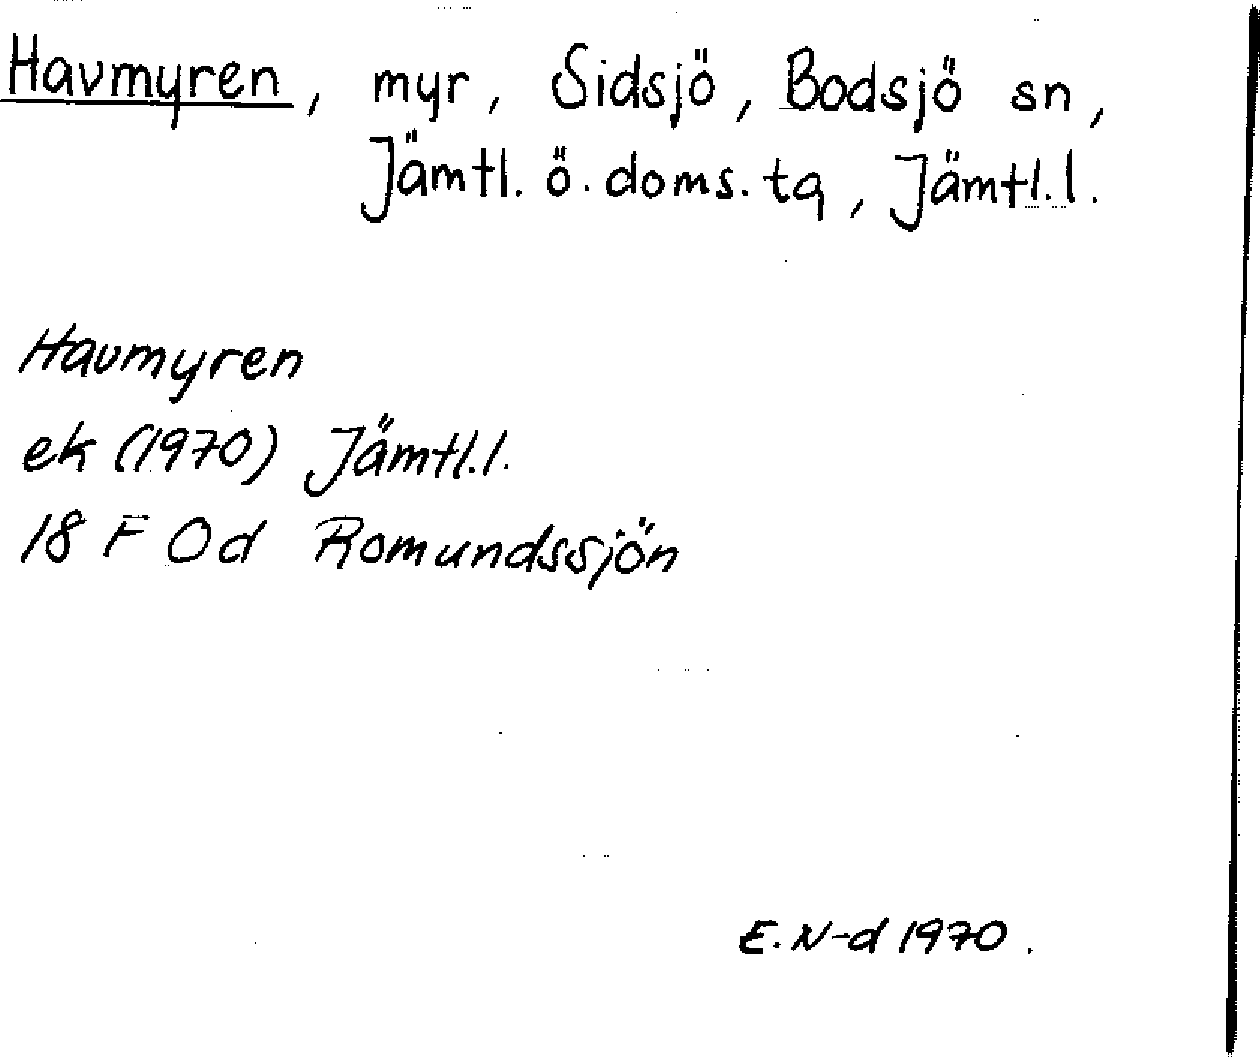 Havmyren, myr, Sidsjö, Bodsjö sn,
Jämtl. ö. doms. tq, Jämtl. l.
Havmyren
ek (1970) Jämtl. l.
18 F Od Romundssjön
E. N-d 1970.